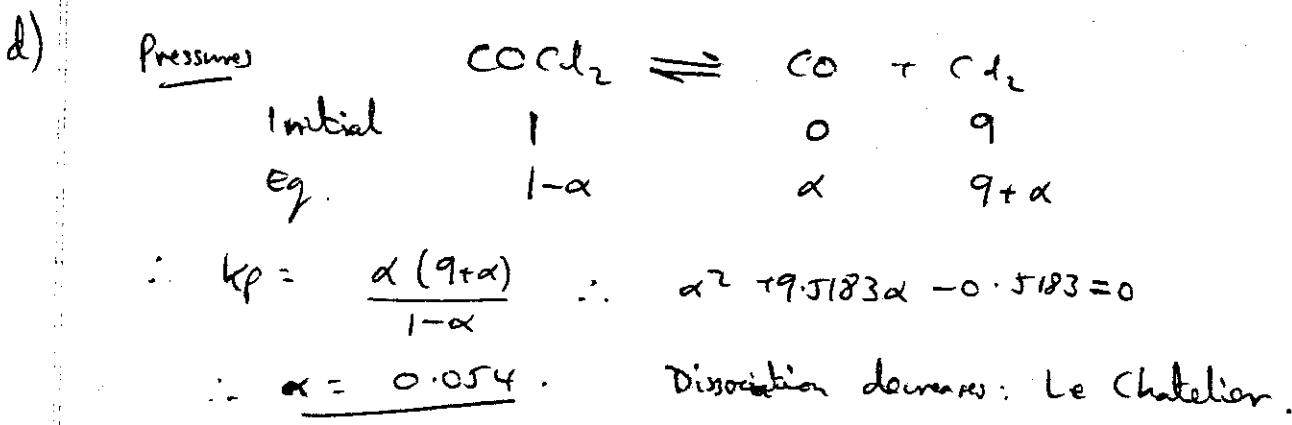 d) Pressures COCl₂ ⇌ CO + Cl₂
Initial 1 0 9
Eq. 1-α α 9+α
∴ Kp = α(9+α)/(1-α) ∴ α² + 9.5183α - 0.5183 = 0
∴ α = 0.054. Dissociation decreases: Le Chatelier.